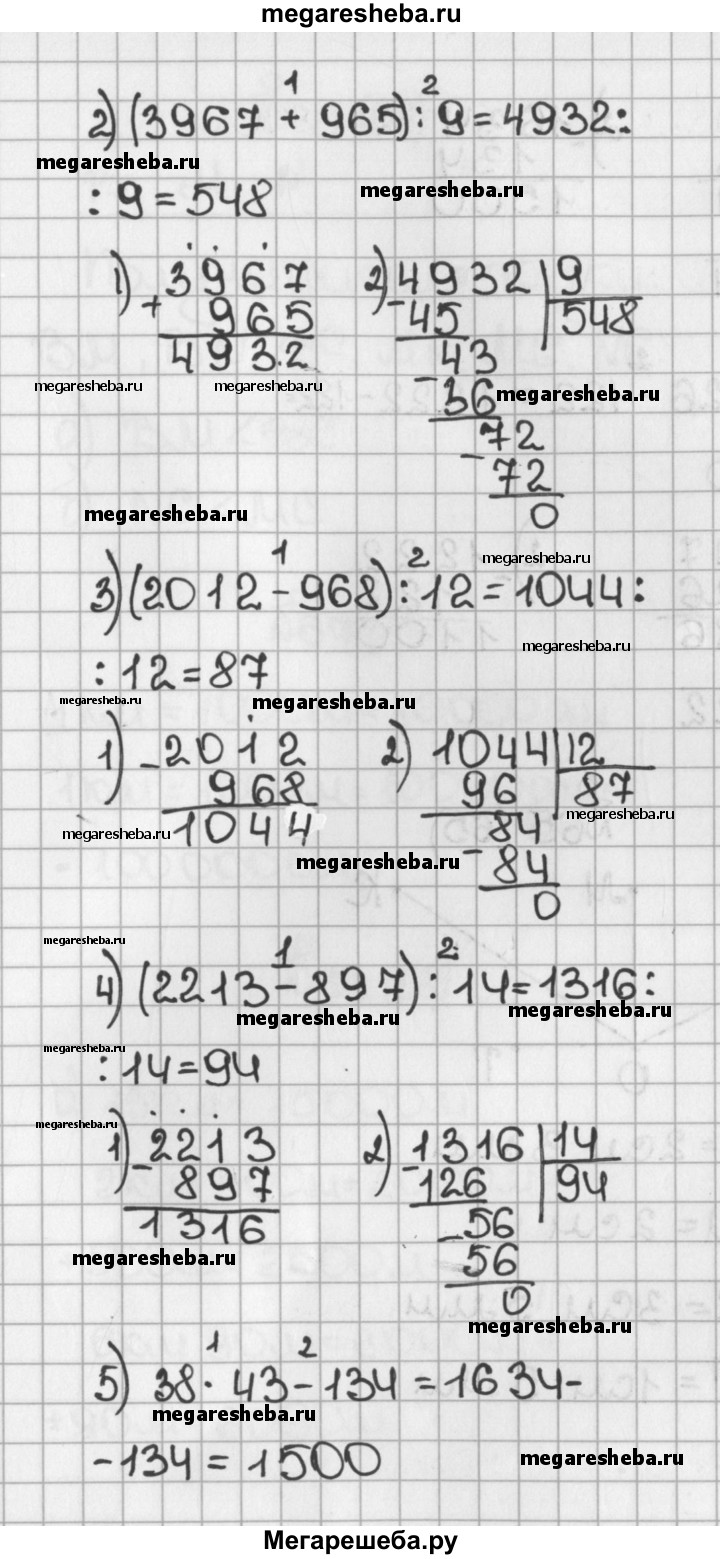 megaresheba.ru
1 2
2) (3967 + 965) : 9 = 4932 :
megaresheba.ru
megaresheba.ru
: 9 = 548
1) 3967 2) 4932 | 9
+ 965 - 45 548
4932 43
megaresheba.ru megaresheba.ru - 36 megaresheba.ru
72
- 72
megaresheba.ru 0
1 2 megaresheba.ru
3) (2012 - 968) : 12 = 1044 :
megaresheba.ru
: 12 = 87
megaresheba.ru megaresheba.ru
1) - 2012 2) 1044 | 12
968 96 87
megaresheba.ru
megaresheba.ru 1044 84
megaresheba.ru - 84
0
megaresheba.ru 1 2
4) (2213 - 897) : 14 = 1316 :
megaresheba.ru megaresheba.ru
megaresheba.ru
: 14 = 94
megaresheba.ru
1) - 2213 2) - 1316 | 14
897 126 94
1316 - 56
megaresheba.ru 56
0
megaresheba.ru
1 2
5) 38 · 43 - 134 = 1634 -
megaresheba.ru
- 134 = 1500
megaresheba.ru
Мегарешеба.ру